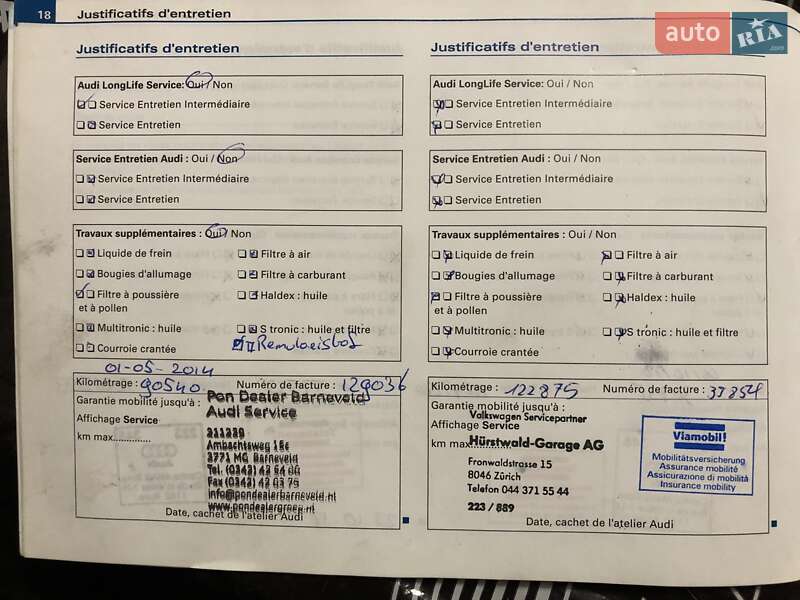 18
Justificatifs d'entretien
auto RIA .com
Justificatifs d'entretien
Audi LongLife Service: Oui / Non
Service Entretien Intermédiaire
Service Entretien
Service Entretien Audi : Oui / Non
Service Entretien Intermédiaire
Service Entretien
Travaux supplémentaires : Oui / Non
Liquide de frein
Filtre à air
Bougies d'allumage
Filtre à carburant
Filtre à poussière
et à pollen
Haldex : huile
Multitronic : huile
S tronic : huile et filtre
Courroie crantée
01-05-2014
Kilométrage : 90540 Numéro de facture : 129036
Garantie mobilité jusqu'à :
Affichage Service
km max..............
Pon Dealer Barneveld
Audi Service
211239
Ambachtsweg 15c
3771 MG Barneveld
Tel. (0342) 42 54 00
Fax (0342) 42 03 75
info@pondealerbarneveld.nl
www.pondealergroep.nl
Date, cachet de l'atelier Audi
Justificatifs d'entretien
Audi LongLife Service: Oui / Non
Service Entretien Intermédiaire
Service Entretien
Service Entretien Audi : Oui / Non
Service Entretien Intermédiaire
Service Entretien
Travaux supplémentaires : Oui / Non
Liquide de frein
Filtre à air
Bougies d'allumage
Filtre à carburant
Filtre à poussière
et à pollen
Haldex : huile
Multitronic : huile
S tronic : huile et filtre
Courroie crantée
Kilométrage : 122875 Numéro de facture : 33854
Garantie mobilité jusqu'à :
Affichage Service
km max.
Volkswagen Servicepartner
Hürstwald-Garage AG
Fronwaldstrasse 15
8046 Zürich
Telefon 044 371 55 44
223 / 889
Viamobil!
Mobilitätsversicherung
Assurance mobilité
Assicurazione di mobilità
Insurance mobility
Date, cachet de l'atelier Audi